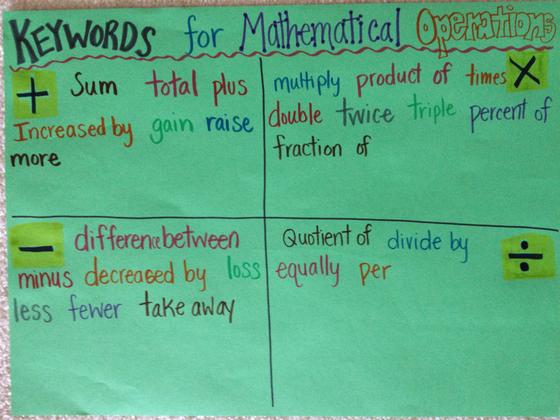 KEYWORDS for Mathematical Operations
+ Sum total plus
Increased by gain raise
more
multiply product of times ×
double twice triple percent of
fraction of
− difference between
minus decreased by loss
less fewer take away
Quotient of divide by ÷
equally per